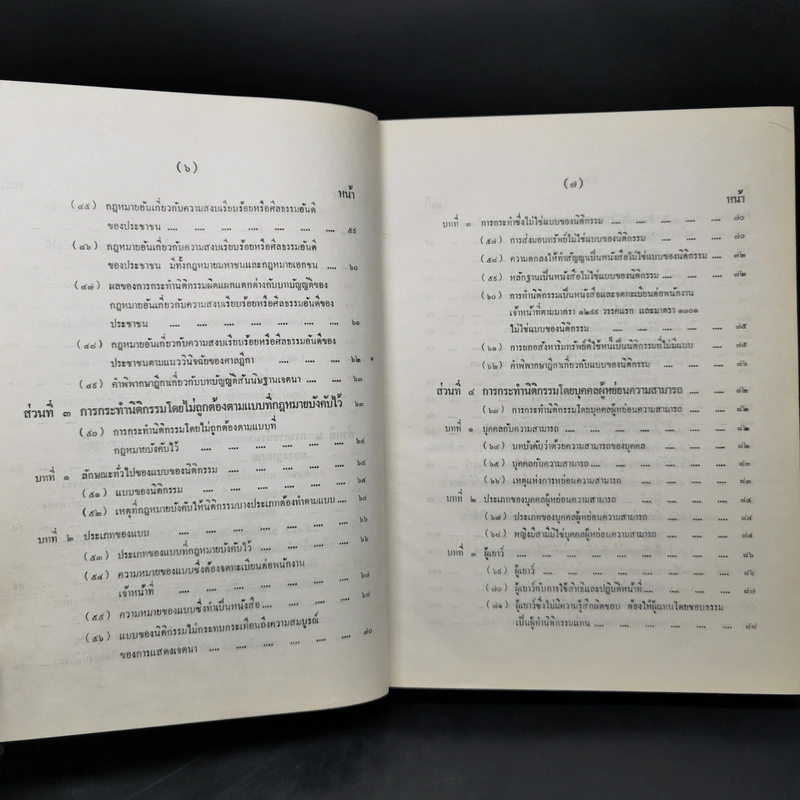 (๖)
หน้า
(๔๕) กฎหมายอันเกี่ยวกับความสงบเรียบร้อยหรือศีลธรรมอันดี
ของประชาชน .... .... .... .... .... .... ๕๙
(๔๖) กฎหมายอันเกี่ยวกับความสงบเรียบร้อยหรือศีลธรรมอันดี
ของประชาชน มีทั้งกฎหมายมหาชนและกฎหมายเอกชน .... ๖๐
(๔๗) ผลของการกระทำนิติกรรมผิดแผกแตกต่างกับบทบัญญัติของ
กฎหมายอันเกี่ยวกับความสงบเรียบร้อยหรือศีลธรรมอันดีของ
ประชาชน .... .... .... .... .... .... ๖๑
(๔๘) กฎหมายอันเกี่ยวกับความสงบเรียบร้อยหรือศีลธรรมอันดีของ
ประชาชนตามแนววินิจฉัยของศาลฎีกา .... .... .... ๖๒
(๔๙) คำพิพากษาฎีกาเกี่ยวกับบทบัญญัติสันนิษฐานเจตนา .... .... ๖๓
ส่วนที่ ๓ การกระทำนิติกรรมโดยไม่ถูกต้องตามแบบที่กฎหมายบังคับไว้ ๖๓
(๕๐) การกระทำนิติกรรมโดยไม่ถูกต้องตามแบบที่
กฎหมายบังคับไว้ .... .... .... .... .... ๖๔
บทที่ ๑ ลักษณะทั่วไปของแบบของนิติกรรม .... .... .... .... ๖๔
(๕๑) แบบของนิติกรรม .... .... .... .... .... ๖๕
(๕๒) เหตุที่กฎหมายบังคับให้นิติกรรมบางประเภทต้องทำตามแบบ .... ๖๕
บทที่ ๒ ประเภทของแบบ .... .... .... .... .... .... ๖๖
(๕๓) ประเภทของแบบที่กฎหมายบังคับไว้ .... .... .... .... ๖๖
(๕๔) ความหมายของแบบซึ่งต้องจดทะเบียนต่อพนักงาน
เจ้าหน้าที่ .... .... .... .... .... .... ๖๗
(๕๕) ความหมายของแบบซึ่งทำเป็นหนังสือ .... .... .... .... ๖๘
(๕๖) แบบของนิติกรรมไม่กระทบกระเทือนถึงความสมบูรณ์
ของการแสดงเจตนา .... .... .... .... .... ๗๐
(๗)
หน้า
บทที่ ๓ การกระทำซึ่งไม่ใช่แบบของนิติกรรม .... .... .... .... .... ๗๐
(๕๗) การส่งมอบทรัพย์ไม่ใช่แบบของนิติกรรม .... .... .... ๗๐
(๕๘) ความตกลงให้ทำสัญญาเป็นหนังสือไม่ใช่แบบของนิติกรรม .... ๗๒
(๕๙) หลักฐานเป็นหนังสือไม่ใช่แบบของนิติกรรม .... .... .... ๗๒
(๖๐) การทำนิติกรรมเป็นหนังสือและจดทะเบียนต่อพนักงาน
เจ้าหน้าที่ตามมาตรา ๑๒๙๙ วรรคแรก และมาตรา ๑๓๐๑
ไม่ใช่แบบของนิติกรรม .... .... .... .... .... ๗๕
(๖๑) การยกอสังหาริมทรัพย์ตีใช้หนี้เป็นนิติกรรมที่ไม่มีแบบ .... .... ๗๕
(๖๒) คำพิพากษาฎีกาเกี่ยวกับแบบของนิติกรรม .... .... .... ๗๖
ส่วนที่ ๔ การกระทำนิติกรรมโดยบุคคลผู้หย่อนความสามารถ .... .... ๘๒
(๖๓) การกระทำนิติกรรมโดยบุคคลผู้หย่อนความสามารถ .... .... ๘๒
บทที่ ๑ บุคคลกับความสามารถ .... .... .... .... .... .... ๘๒
(๖๔) บทบังคับว่าด้วยความสามารถของบุคคล .... .... .... ๘๒
(๖๕) บุคคลกับความสามารถ .... .... .... .... .... ๘๓
(๖๖) เหตุแห่งการหย่อนความสามารถ .... .... .... .... ๘๓
บทที่ ๒ ประเภทของบุคคลผู้หย่อนความสามารถ .... .... .... .... ๘๔
(๖๗) ประเภทของบุคคลผู้หย่อนความสามารถ .... .... .... ๘๔
(๖๘) หญิงมีสามีมิใช่บุคคลผู้หย่อนความสามารถ .... .... .... ๘๔
บทที่ ๓ ผู้เยาว์ .... .... .... .... .... .... .... ๘๖
(๖๙) ผู้เยาว์ .... .... .... .... .... .... .... ๘๖
(๗๐) ผู้เยาว์กับการใช้สิทธิและปฏิบัติหน้าที่ .... .... .... ๘๗
(๗๑) ผู้เยาว์ซึ่งไม่มีความรู้สึกผิดชอบ ต้องให้ผู้แทนโดยชอบธรรม
เป็นผู้ทำนิติกรรมแทน .... .... .... .... .... ๘๘